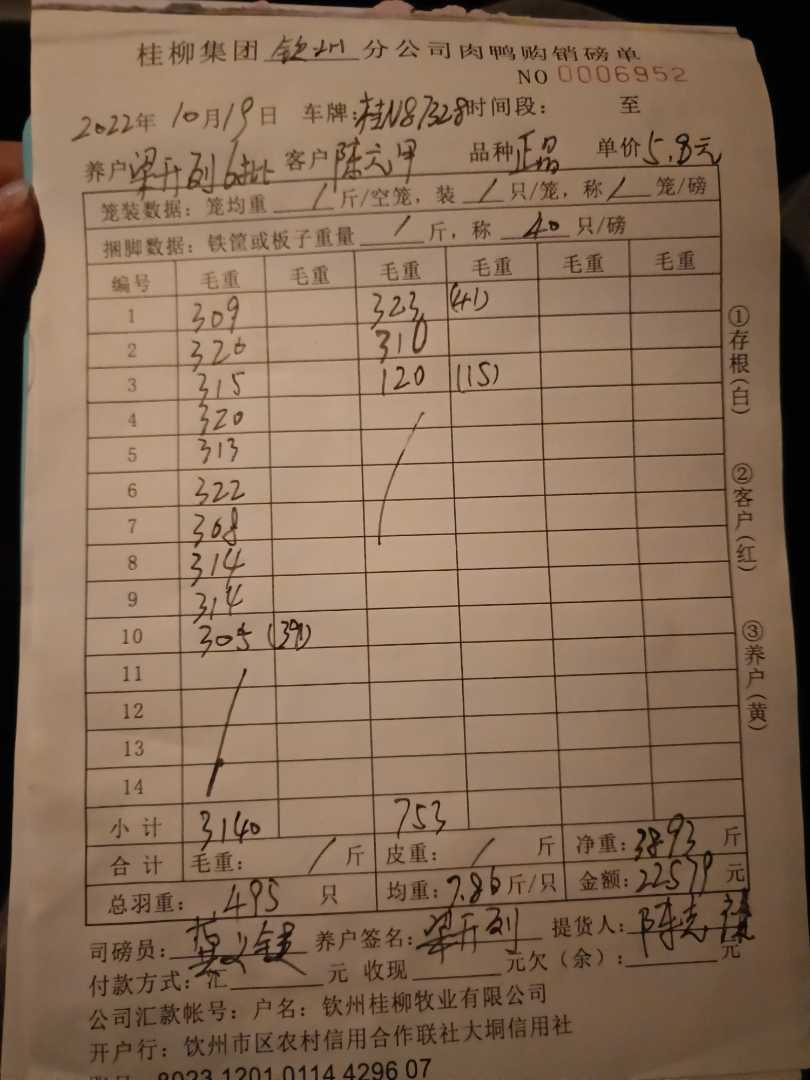 桂柳集团 钦州 分公司肉鸭购销磅单
NO 0006952
2022年 10月19日 车牌:桂N87328 时间段: 至
养户 梁开列6批 客户 陈元甲 品种 正品 单价 5.8元
笼装数据:笼均重 / 斤/空笼,装 / 只/笼,称 / 笼/磅
捆脚数据:铁筐或板子重量 / 斤,称 40 只/磅
编号 毛重 毛重 毛重 毛重 毛重 毛重
1 309 323 (41)
2 320 310
3 315 120 (15)
4 320
5 313
6 322
7 308
8 314
9 314
10 305 (39)
11
12
13
14
小计 3140 753
合计 毛重: / 斤 皮重: / 斤 净重:3893 斤
总羽重: 495 只 均重:7.86 斤/只 金额:22579 元
司磅员: 养户签名:梁开列 提货人:
付款方式:汇 元 收现 元欠(余): 元
公司汇款帐号:户名:钦州桂柳牧业有限公司
开户行:钦州市区农村信用合作联社大垌信用社
8023 1201 0114 4296 07
①存根(白)
②客户(红)
③养户(黄)